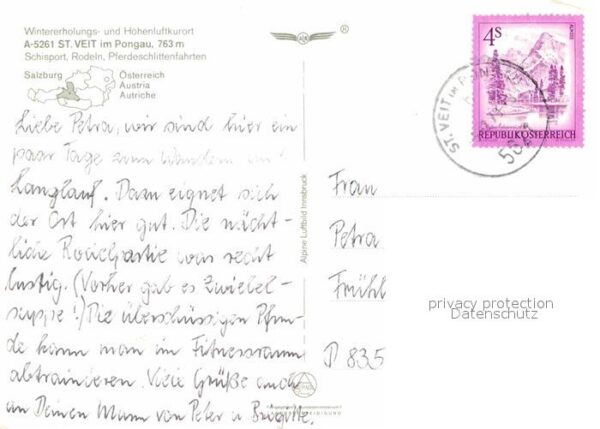 Wintererholungs- und Höhenluftkurort
A-5261 ST. VEIT im Pongau, 763 m
Schisport, Rodeln, Pferdeschlittenfahrten
Salzburg
Österreich
Austria
Autriche
R
4S
REPUBLIK ÖSTERREICH
ST. VEIT IM PON
Liebe Petra, wir sind hier ein
paar Tage zum Wandern und
Langlauf. Dazu eignet sich
der Ort hier gut. Die nächt-
liche Rodelpartie war recht
lustig. (Vorher gab es Zwiebel-
suppe!) Die überschüssigen Pfun-
de kann man im Fitnessraum
abtrainieren. Viele Grüße auch
an Deinen Mann von Peter u. Brigitte.
Alpine Luftbild Innsbruck
Frau
Petra
Frühl
D 835
privacy protection
Datenschutz